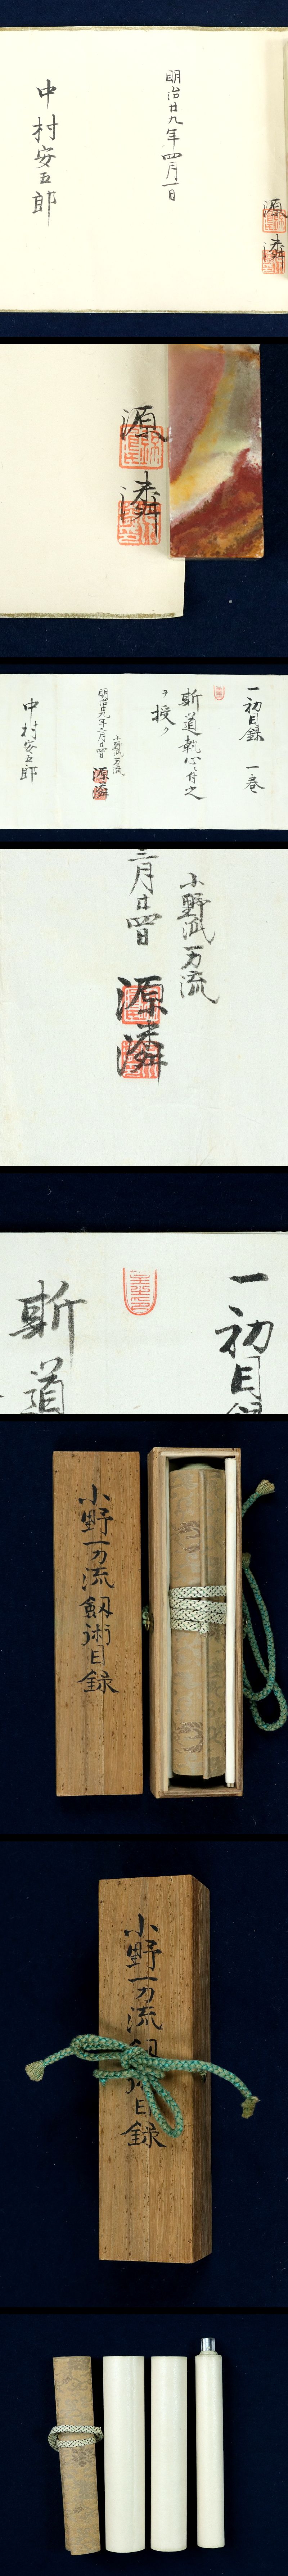 明治廿九年四月一日
中村安五郎
源
源
一初目録 一巻
斬道執心ニ付之
ヲ授ク
小野派一刀流
明治廿九年三月廿四日
中村安五郎
小野派一刀流
三月廿四日
源
一初目録
斬道
小野一刀流剱術目録
小野一刀流剱術目録